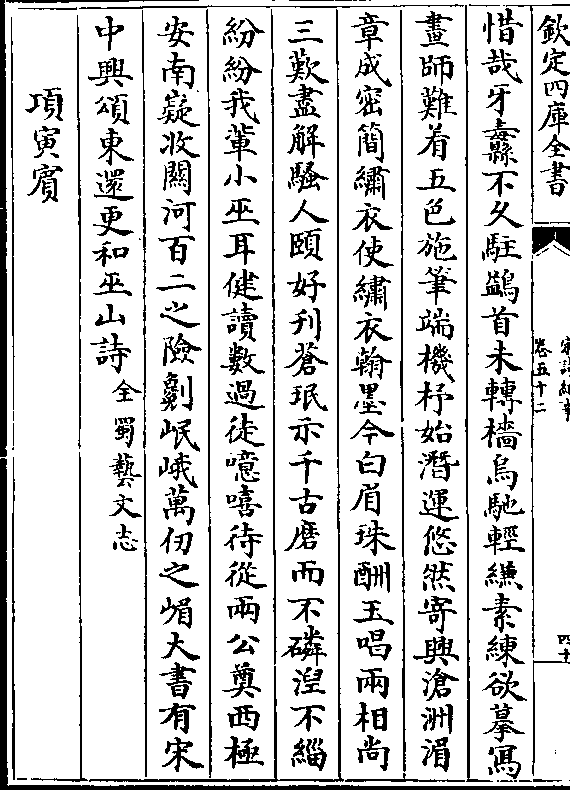 欽定四庫全書
宋詩紀事
卷五十二
四十
惜哉牙纛不久駐鷁首未轉檣烏馳輕縑素練欲摹寫
畫師難着五色施筆端機杼始潛運悠然寄興滄洲湄
章成密簡繡衣使繡衣翰墨今白眉珠酬玉唱兩相尚
三歎盡解騷人頤好刋蒼珉示千古磨而不磷湼不緇
紛紛我輩小巫耳健讀數過徒噫嘻待從兩公奠西極
安南疑收關河百二之險劖岷峨萬仞之嵋大書有宋
中興頌東還更和巫山詩全蜀藝文志
項寅賓